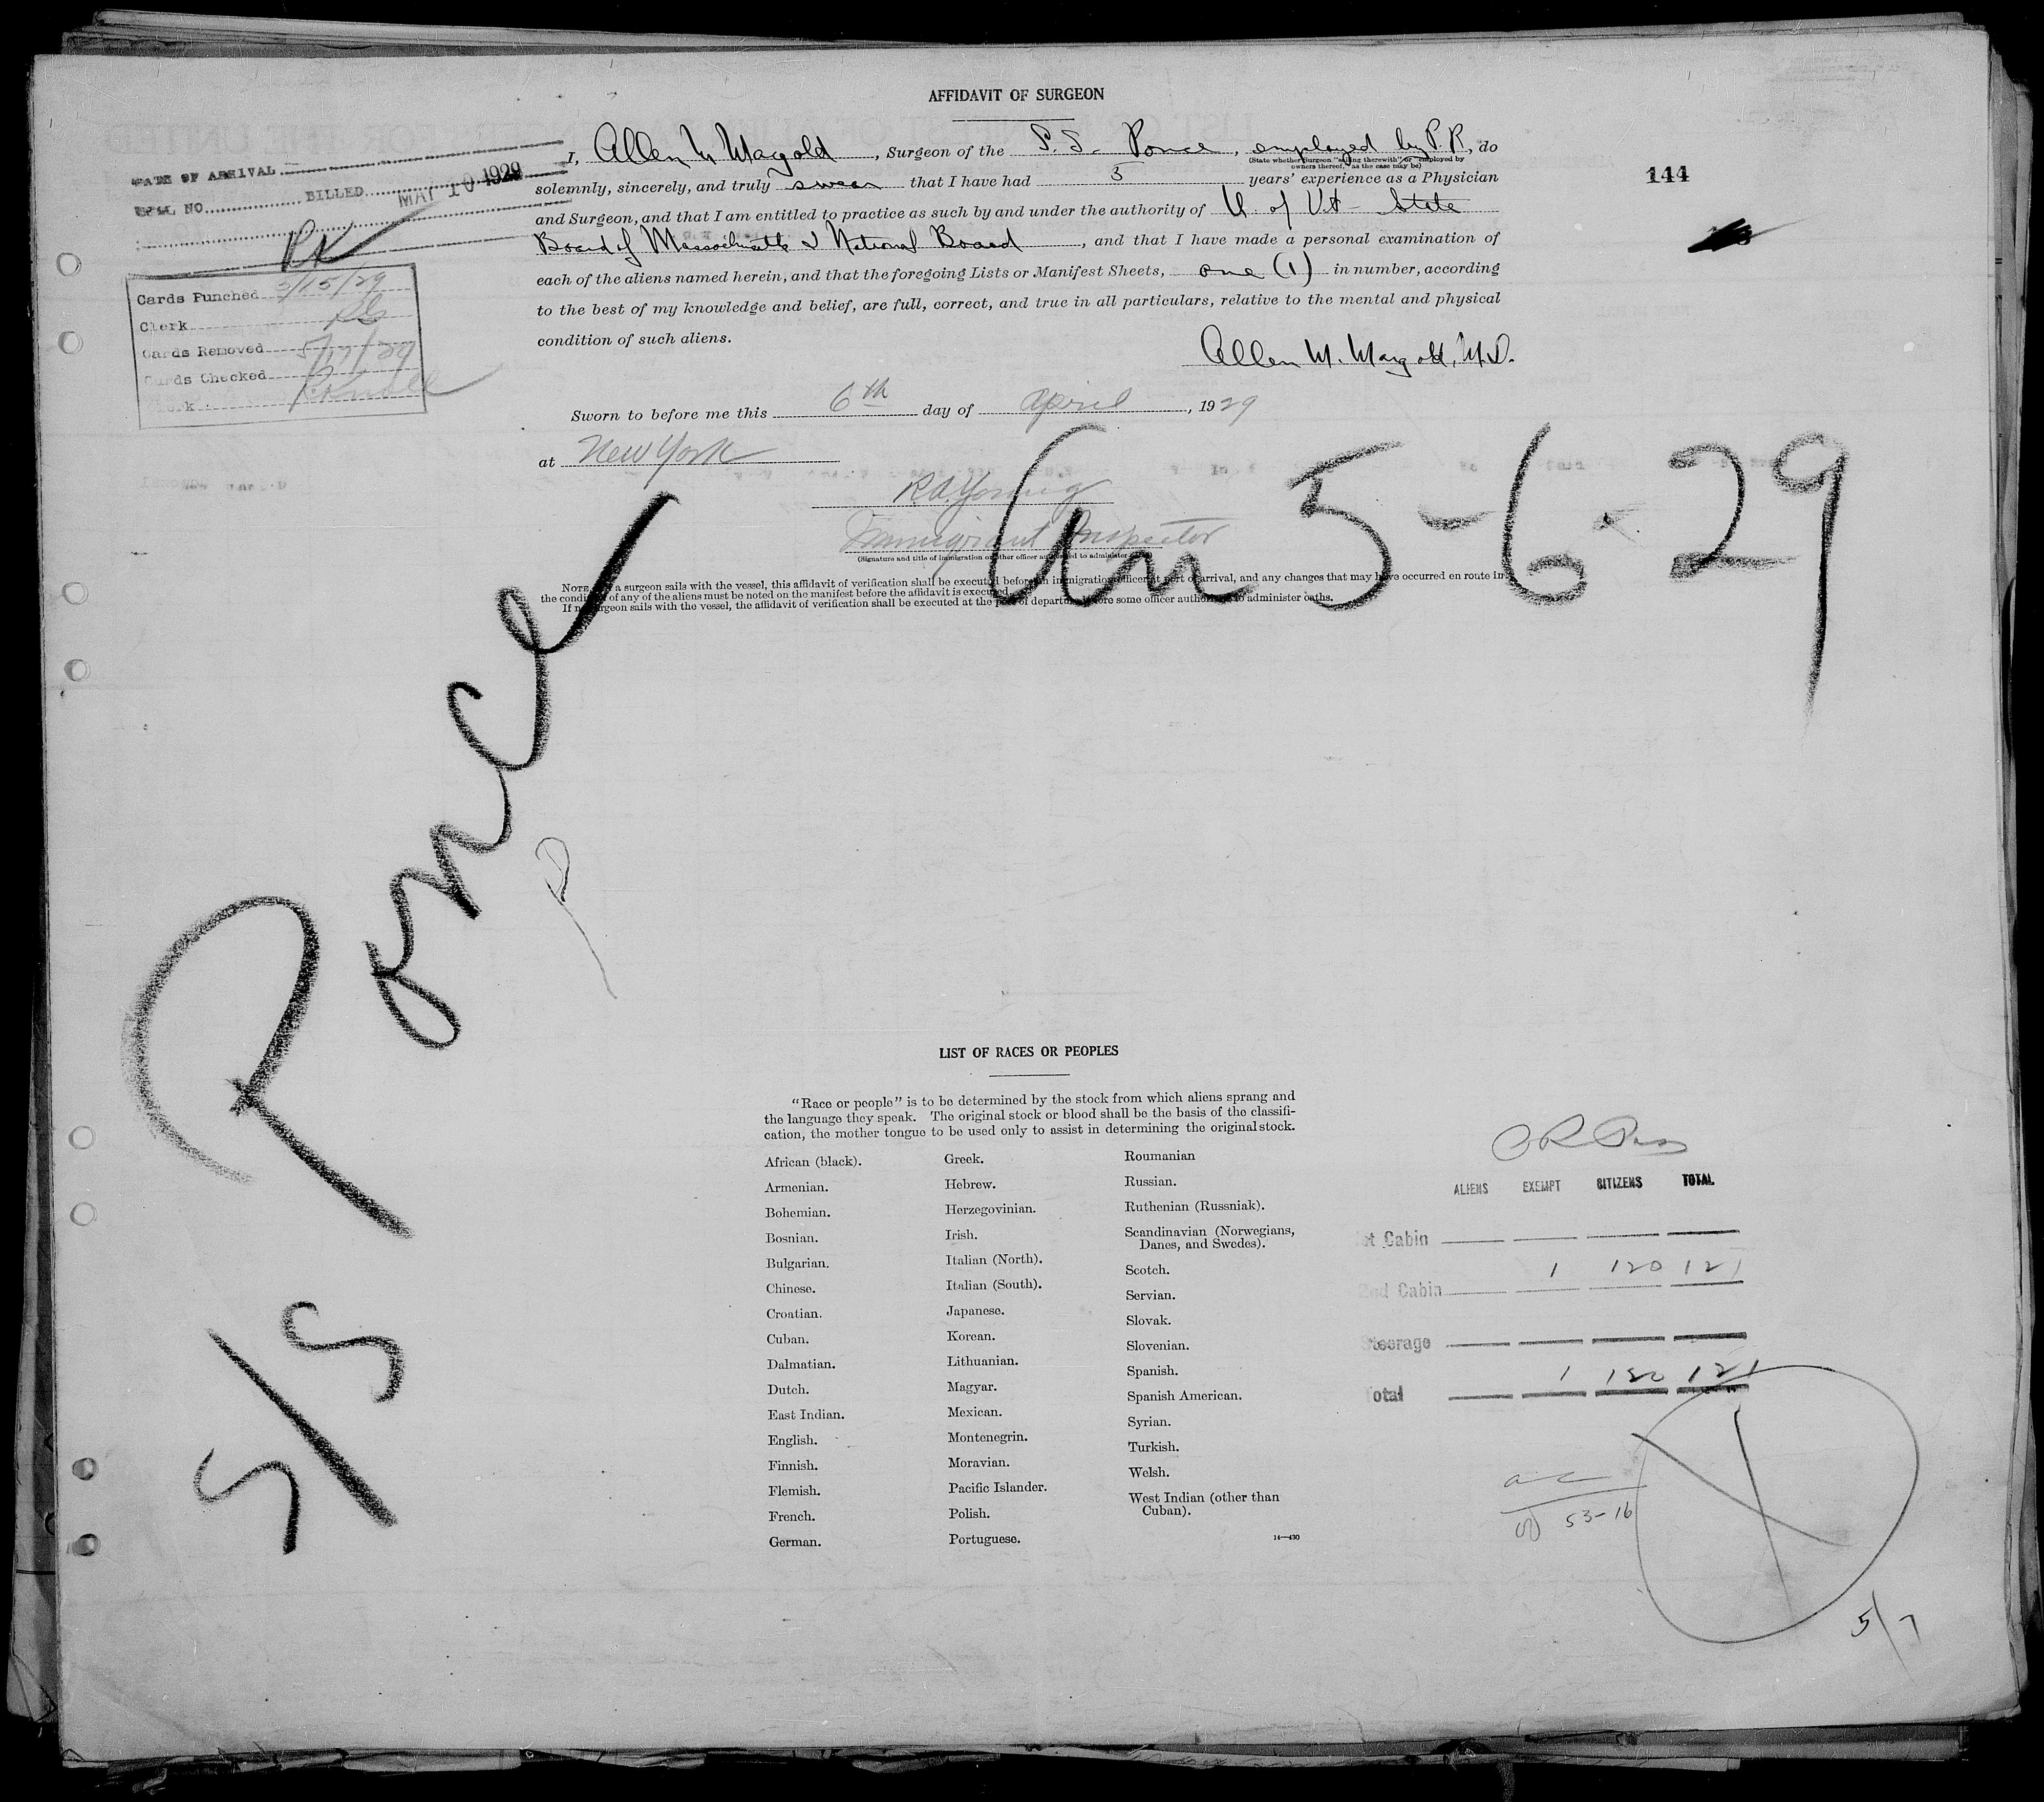 AFFIDAVIT OF SURGEON
I, Allen M Margold, Surgeon of the S. S. Ponce, employed by P. R., do
(State whether Surgeon "sailing therewith" or "employed by owners thereof," as the case may be)
solemnly, sincerely, and truly swear that I have had 5 years' experience as a Physician
and Surgeon, and that I am entitled to practice as such by and under the authority of U. of Vt - State
Board of Massachusetts & National Board, and that I have made a personal examination of
each of the aliens named herein, and that the foregoing Lists or Manifest Sheets, one (1) in number, according
to the best of my knowledge and belief, are full, correct, and true in all particulars, relative to the mental and physical
condition of such aliens.
Allen M. Margold, M.D.
Sworn to before me this 6th day of April, 1929
at New York
R.A. Young
Immigrant Inspector
(Signature and title of immigration or other officer authorized to administer
NOTE a surgeon sails with the vessel, this affidavit of verification shall be executed before an immigration officer at port of arrival, and any changes that may have occurred en route in
the condition of any of the aliens must be noted on the manifest before the affidavit is executed.
If no surgeon sails with the vessel, the affidavit of verification shall be executed at the port of departure before some officer authorized to administer oaths.
DATE OF ARRIVAL
BILLED MAY 10 1929
RK
Cards Punched 5/15/29
Clerk
Cards Removed 5/17/29
Cards Checked
Clerk
144
Arr 5-6-29
S/S Ponce
P
LIST OF RACES OR PEOPLES
"Race or people" is to be determined by the stock from which aliens sprang and
the language they speak. The original stock or blood shall be the basis of the classifi-
cation, the mother tongue to be used only to assist in determining the original stock.
African (black).
Armenian.
Bohemian.
Bosnian.
Bulgarian.
Chinese.
Croatian.
Cuban.
Dalmatian.
Dutch.
East Indian.
English.
Finnish.
Flemish.
French.
German.
Greek.
Hebrew.
Herzegovinian.
Irish.
Italian (North).
Italian (South).
Japanese.
Korean.
Lithuanian.
Magyar.
Mexican.
Montenegrin.
Moravian.
Pacific Islander.
Polish.
Portuguese.
Roumanian
Russian.
Ruthenian (Russniak).
Scandinavian (Norwegians,
Danes, and Swedes).
Scotch.
Servian.
Slovak.
Slovenian.
Spanish.
Spanish American.
Syrian.
Turkish.
Welsh.
West Indian (other than
Cuban).
14—430
ALIENS EXEMPT CITIZENS TOTAL
1st Cabin
2nd Cabin 1 120 121
Steerage
Total 1 120 121
53-16
5/7